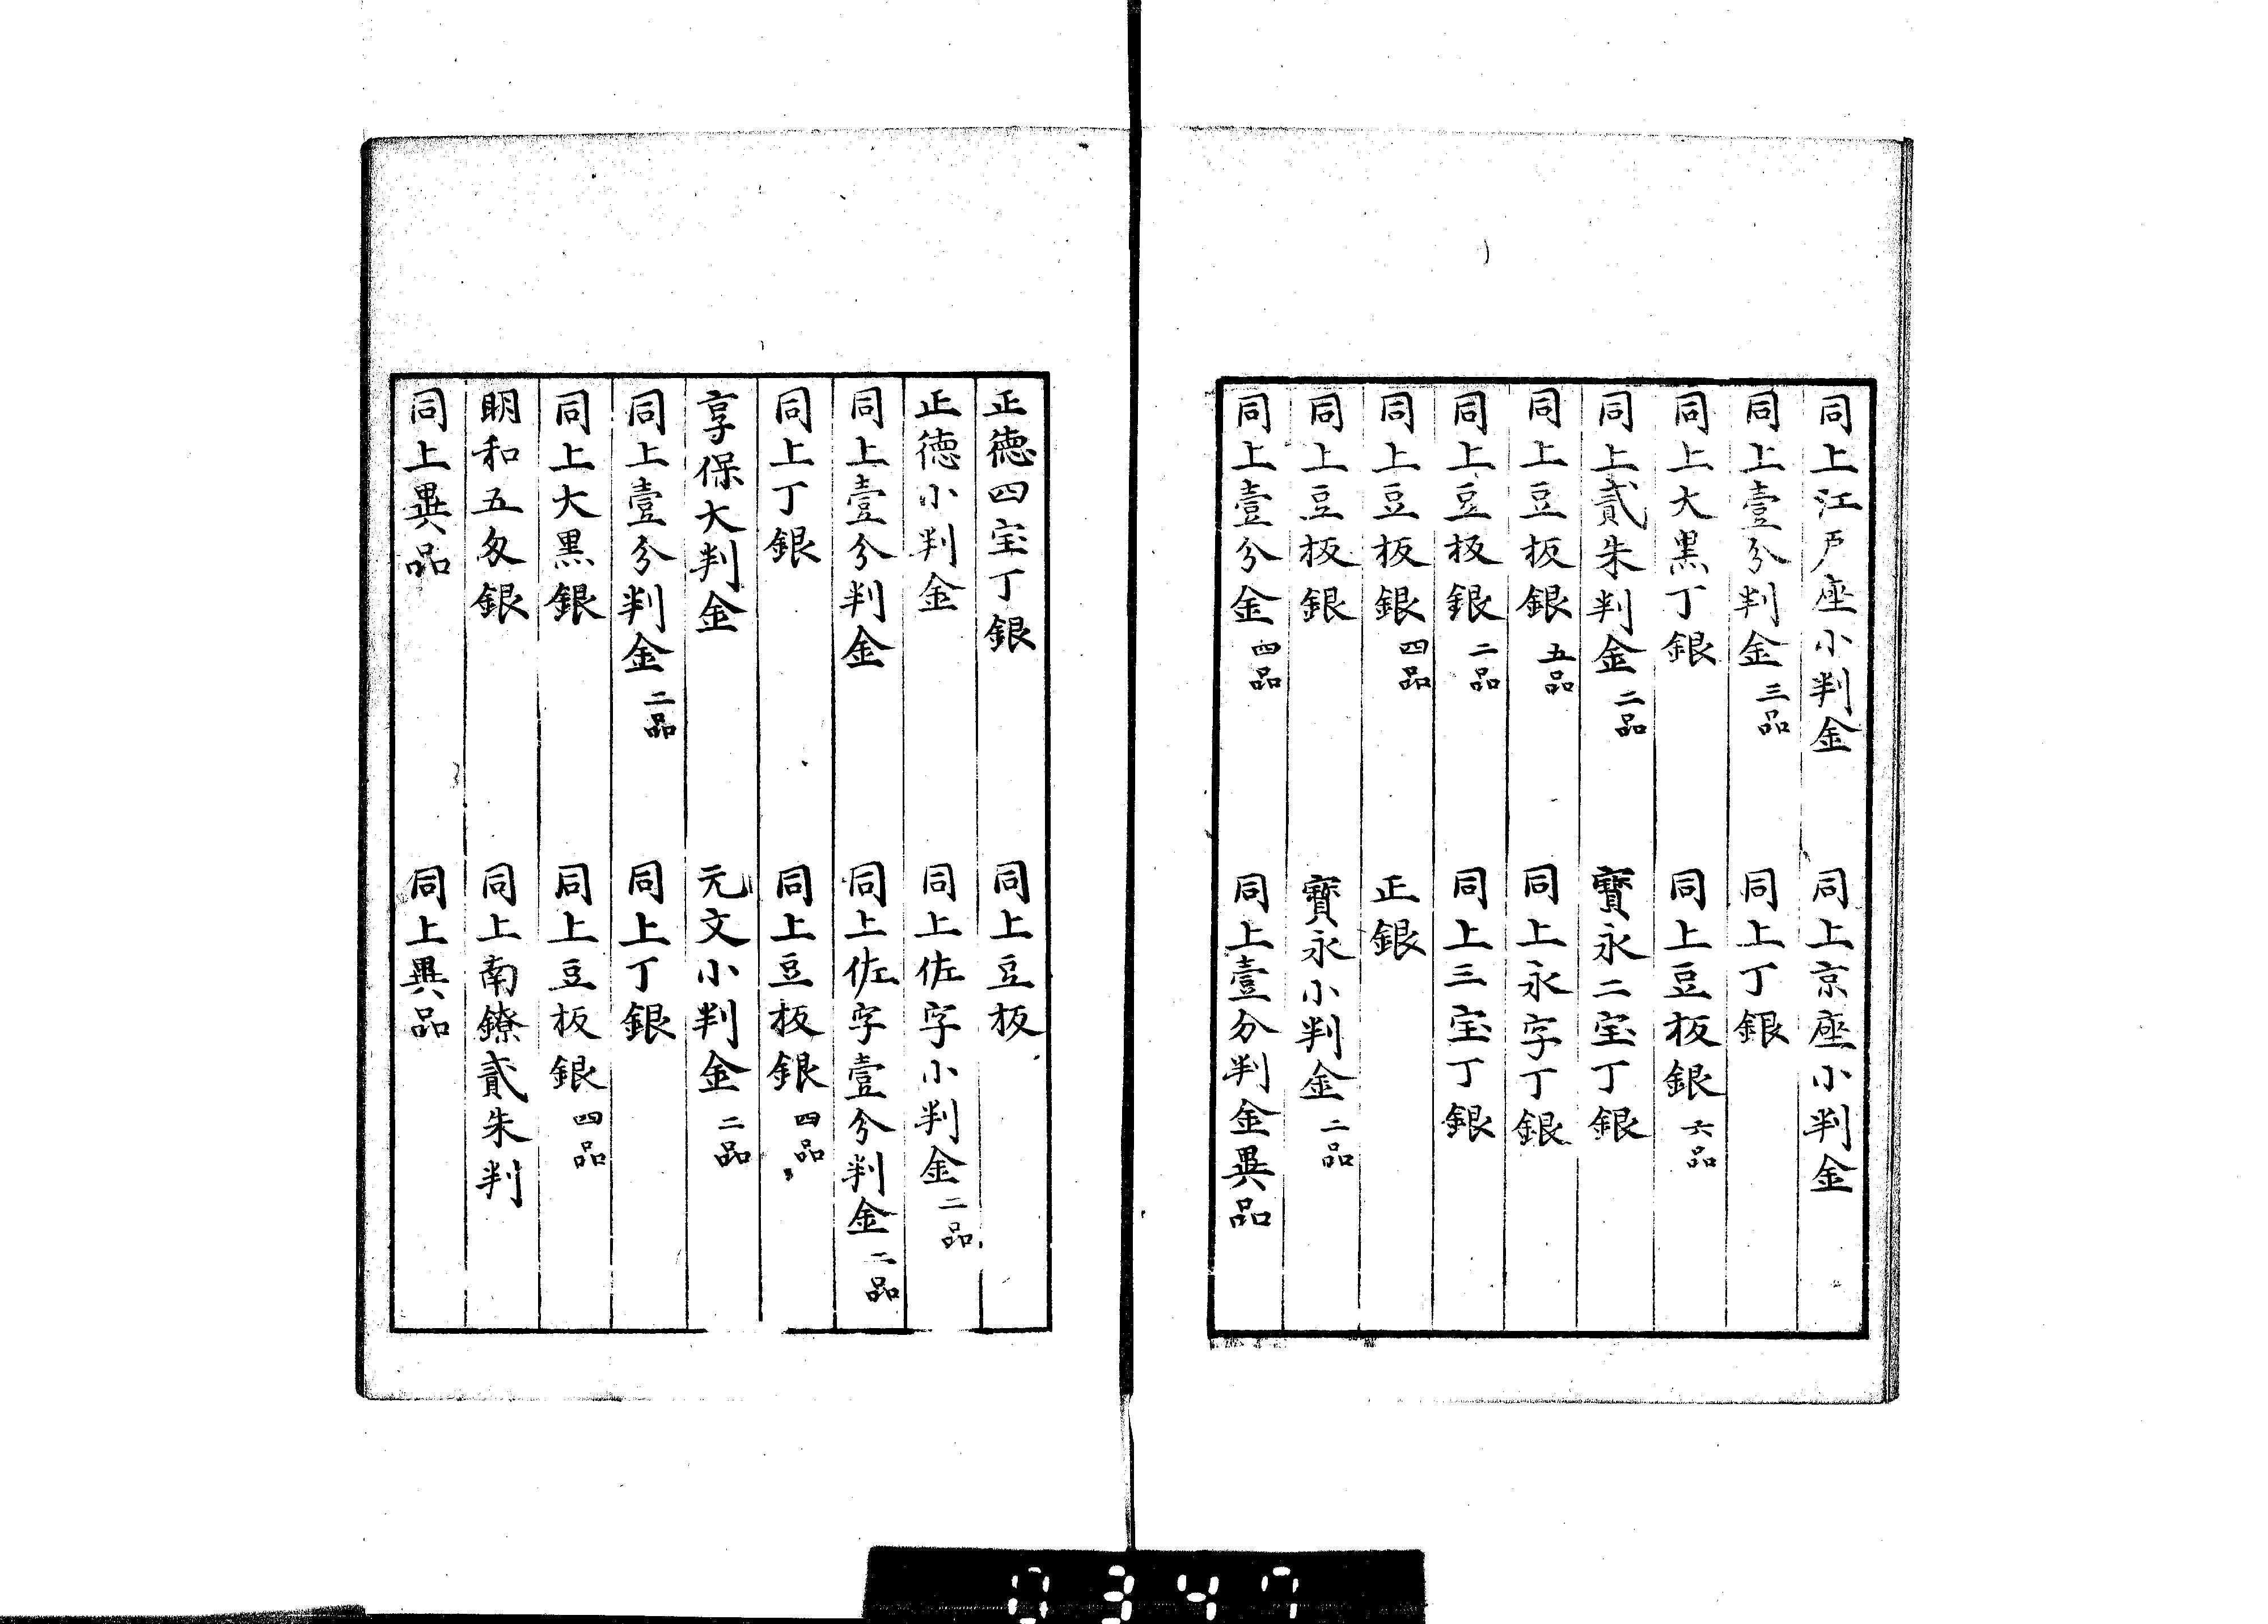 同上江戸座小判金　同上京座小判金
同上壹分判金 三品　同上丁銀
同上大黒丁銀　同上豆板銀 六品
同上貳朱判金 二品　寳永二宝丁銀
同上豆板銀 五品　同上永字丁銀
同上豆板銀 二品　同上三宝丁銀
同上豆板銀 四品　正銀
同上豆板銀　寳永小判金 二品
同上壹分金 四品　同上壹分判金異品
正徳四宝丁銀　同上豆板
正徳小判金　同上佐字小判金 二品
同上壹分判金　同上佐字壹分判金 二品
同上丁銀　同上豆板銀 四品
享保大判金　元文小判金 二品
同上壹分判金 二品　同上丁銀
同上大黒銀　同上豆板銀 四品
明和五匁銀　同上南鐐貳朱判
同上異品　同上異品
0347